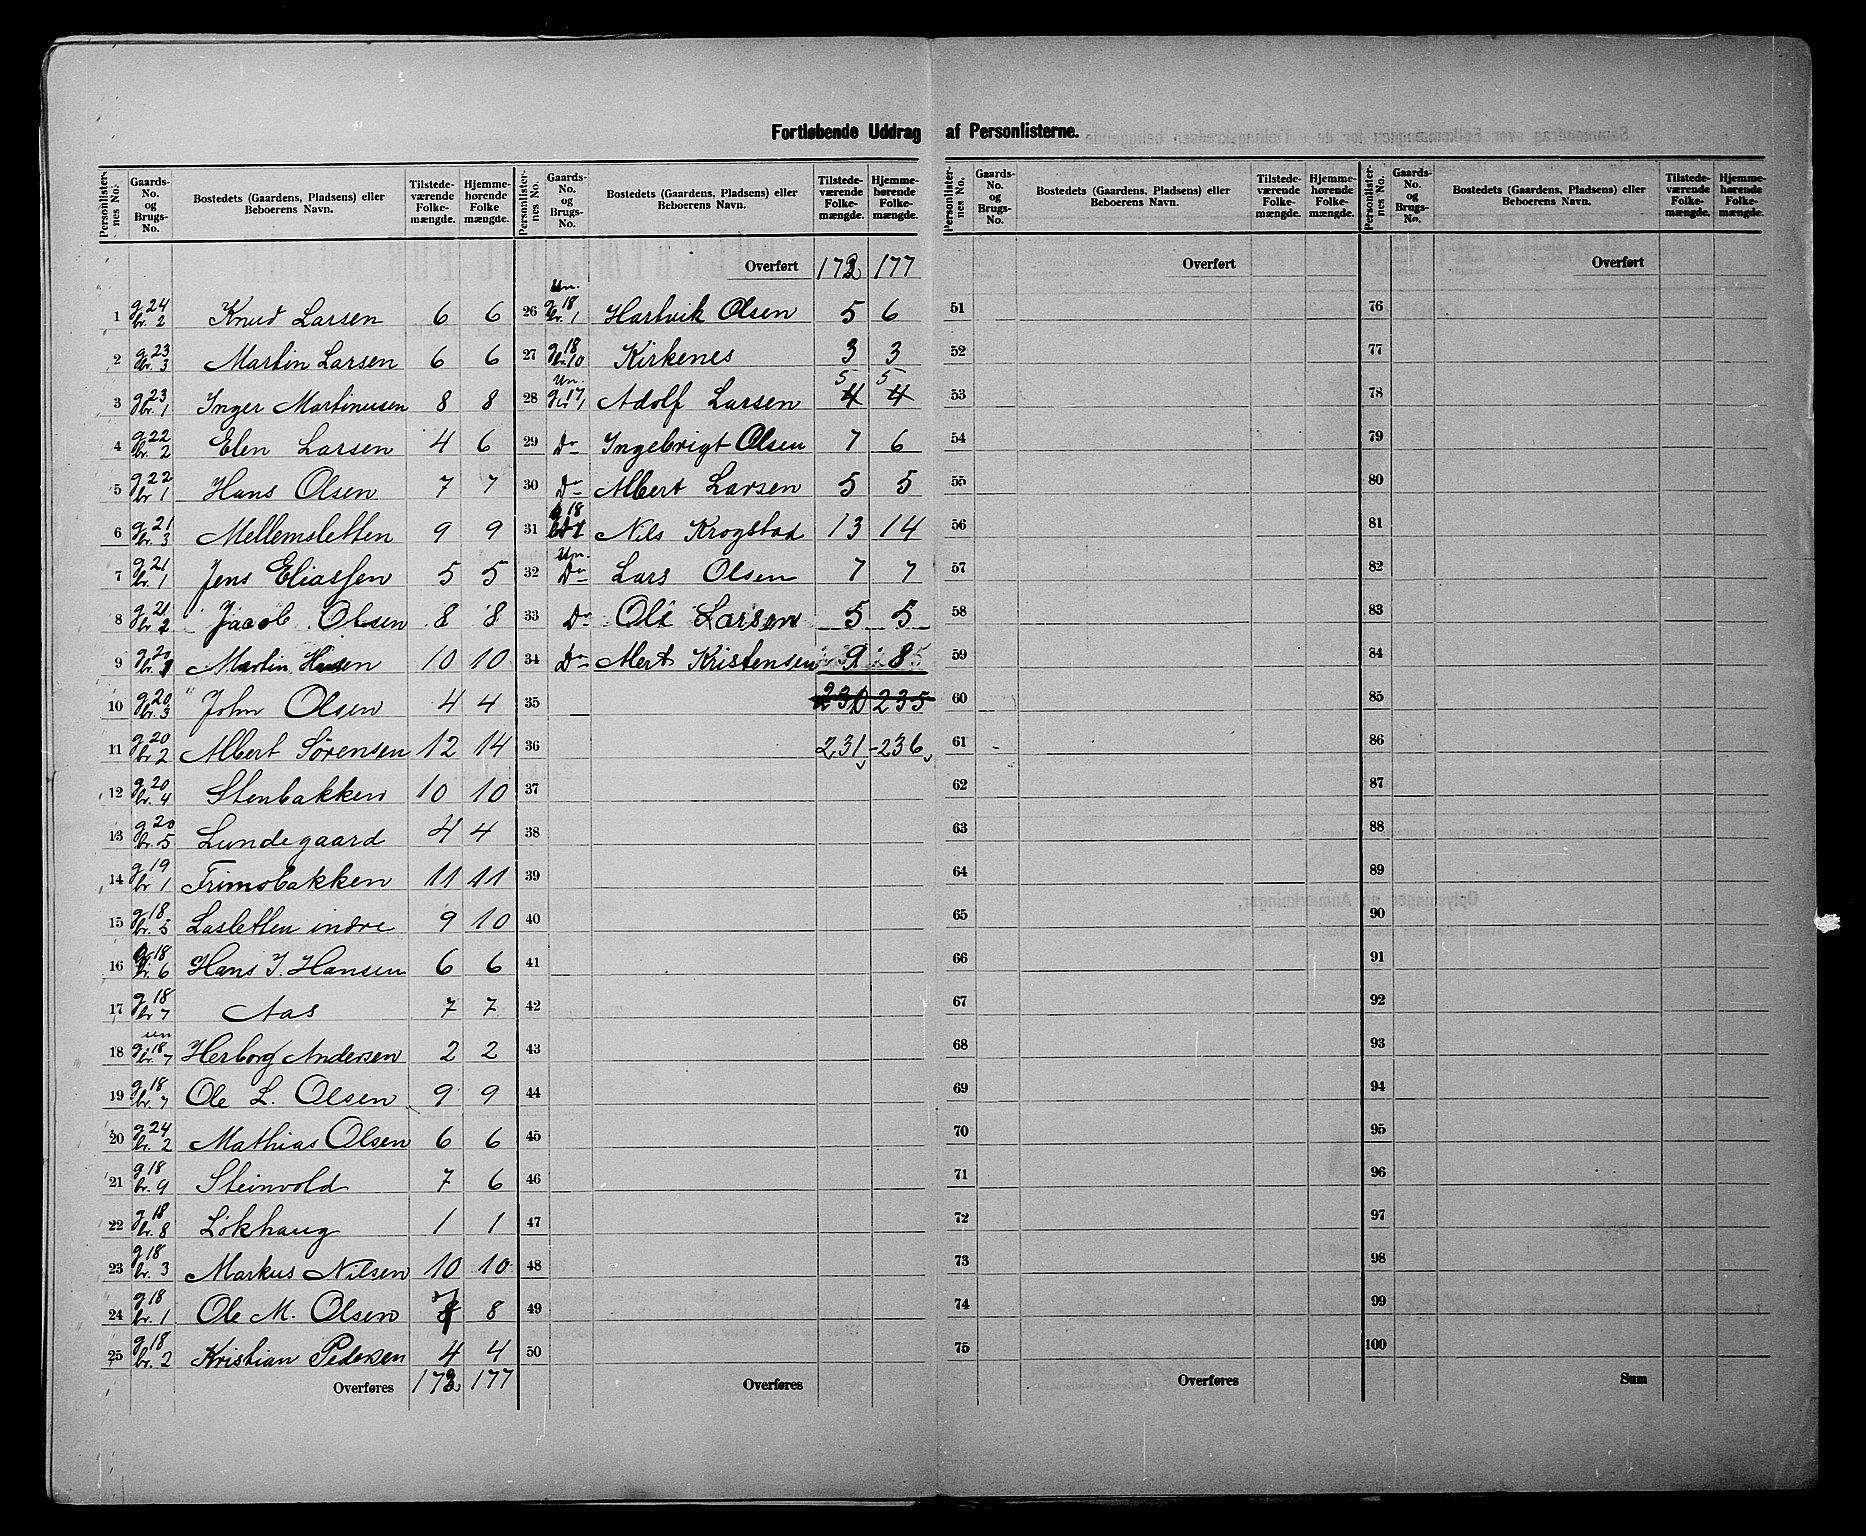 Fortløbende Uddrag af Personlisterne.
Personlister-nes No. Gaards-No. og Brugs-No. Bostedets (Gaardens, Pladsens) eller Beboerens Navn. Tilstede-værende Folke-mængde. Hjemme-hørende Folke mængde.
1 g 24 br. 2 Knud Larsen 6 6
2 g 23 br. 3 Martin Larsen 6 6
3 g 23 br. 1 Inger Martinusen 8 8
4 g 22 br. 2 Elen Larsen 4 6
5 g 22 br 1 Hans Olsen 7 7
6 g 21 br. 3 Mellemsletten 9 9
7 g 21 br. 1 Jens Eliassen 5 5
8 g 21 br 2 Jacob Olsen 8 8
9 g 20 br. 1 Martin Hansen 10 10
10 g 20 br. 3 John Olsen 4 4
11 g 20 br 2 Albert Sørensen 12 14
12 g 20 br. 4 Stenbakken 10 10
13 g 20 br. 5 Lundegaard 4 4
14 g 19 br 1 Trimobakken 11 11
15 g 18 br. 5 Lasletten indre 9 10
16 g 18 br. 6 Hans J. Hansen 6 6
17 g 18 br 7 Aas 7 7
18 un g. 18 br. 7 Herborg Andersen 2 2
19 g 18 br. 7 Ole L. Olsen 9 9
20 g 24 br. 2 Mathias Olsen 6 6
21 g 18 br. 9 Steinvold 7 6
22 g 18 br. 8 Løkhaug 1 1
23 g 18 br. 3 Markus Nilsen 10 10
24 g 18 br. 1 Ole M. Olsen 7 8
25 g 18 br. 2 Kristian Pedersen 4 4
Overføres 172 177
Personlister-nes No. Gaards-No. og Brugs-No. Bostedets (Gaardens, Pladsens) eller Beboerens Navn. Tilstede-værende Folke-mængde. Hjemme-hørende Folke-mængde.
Overført 172 177
26 Un. g 18 br. 1 Hartvik Olsen 5 6
27 g 18 br. 10 Kirkenes 3 3
28 Un. g. 17 br. 1 Adolf Larsen 4 5 4 5
29 Do Ingebrigt Olsen 7 6
30 Do Albert Larsen 5 5
31 g 18 br 1 Nils Krogstad 13 14
32 Un. Do Lars Olsen 7 7
33 Do Ole Larsen 5 5
34 Do Mert Kristensen 9 8
35 230 235
36 231 - 236
37
38
39
40
41
42
43
44
45
46
47
48
49
50
Overføres
Personlister-nes No. Gaards-No. og Brugs-No. Bostedets (Gaardens, Pladsens) eller Beboerens Navn. Tilstede-værende Folke-mængde. Hjemme-hørende Folke-mængde.
Overført
51
52
53
54
55
56
57
58
59
60
61
62
63
64
65
66
67
68
69
70
71
72
73
74
75
Overføres
Personlister-nes No. Gaards-No. og Brugs-No. Bostedets (Gaardens, Pladsens) eller Beboerens Navn. Tilstede-værende Folke-mængde. Hjemme-hørende Folke-mængde.
Overført
76
77
78
79
80
81
82
83
84
85
86
87
88
89
90
91
92
93
94
95
96
97
98
99
100
Sum